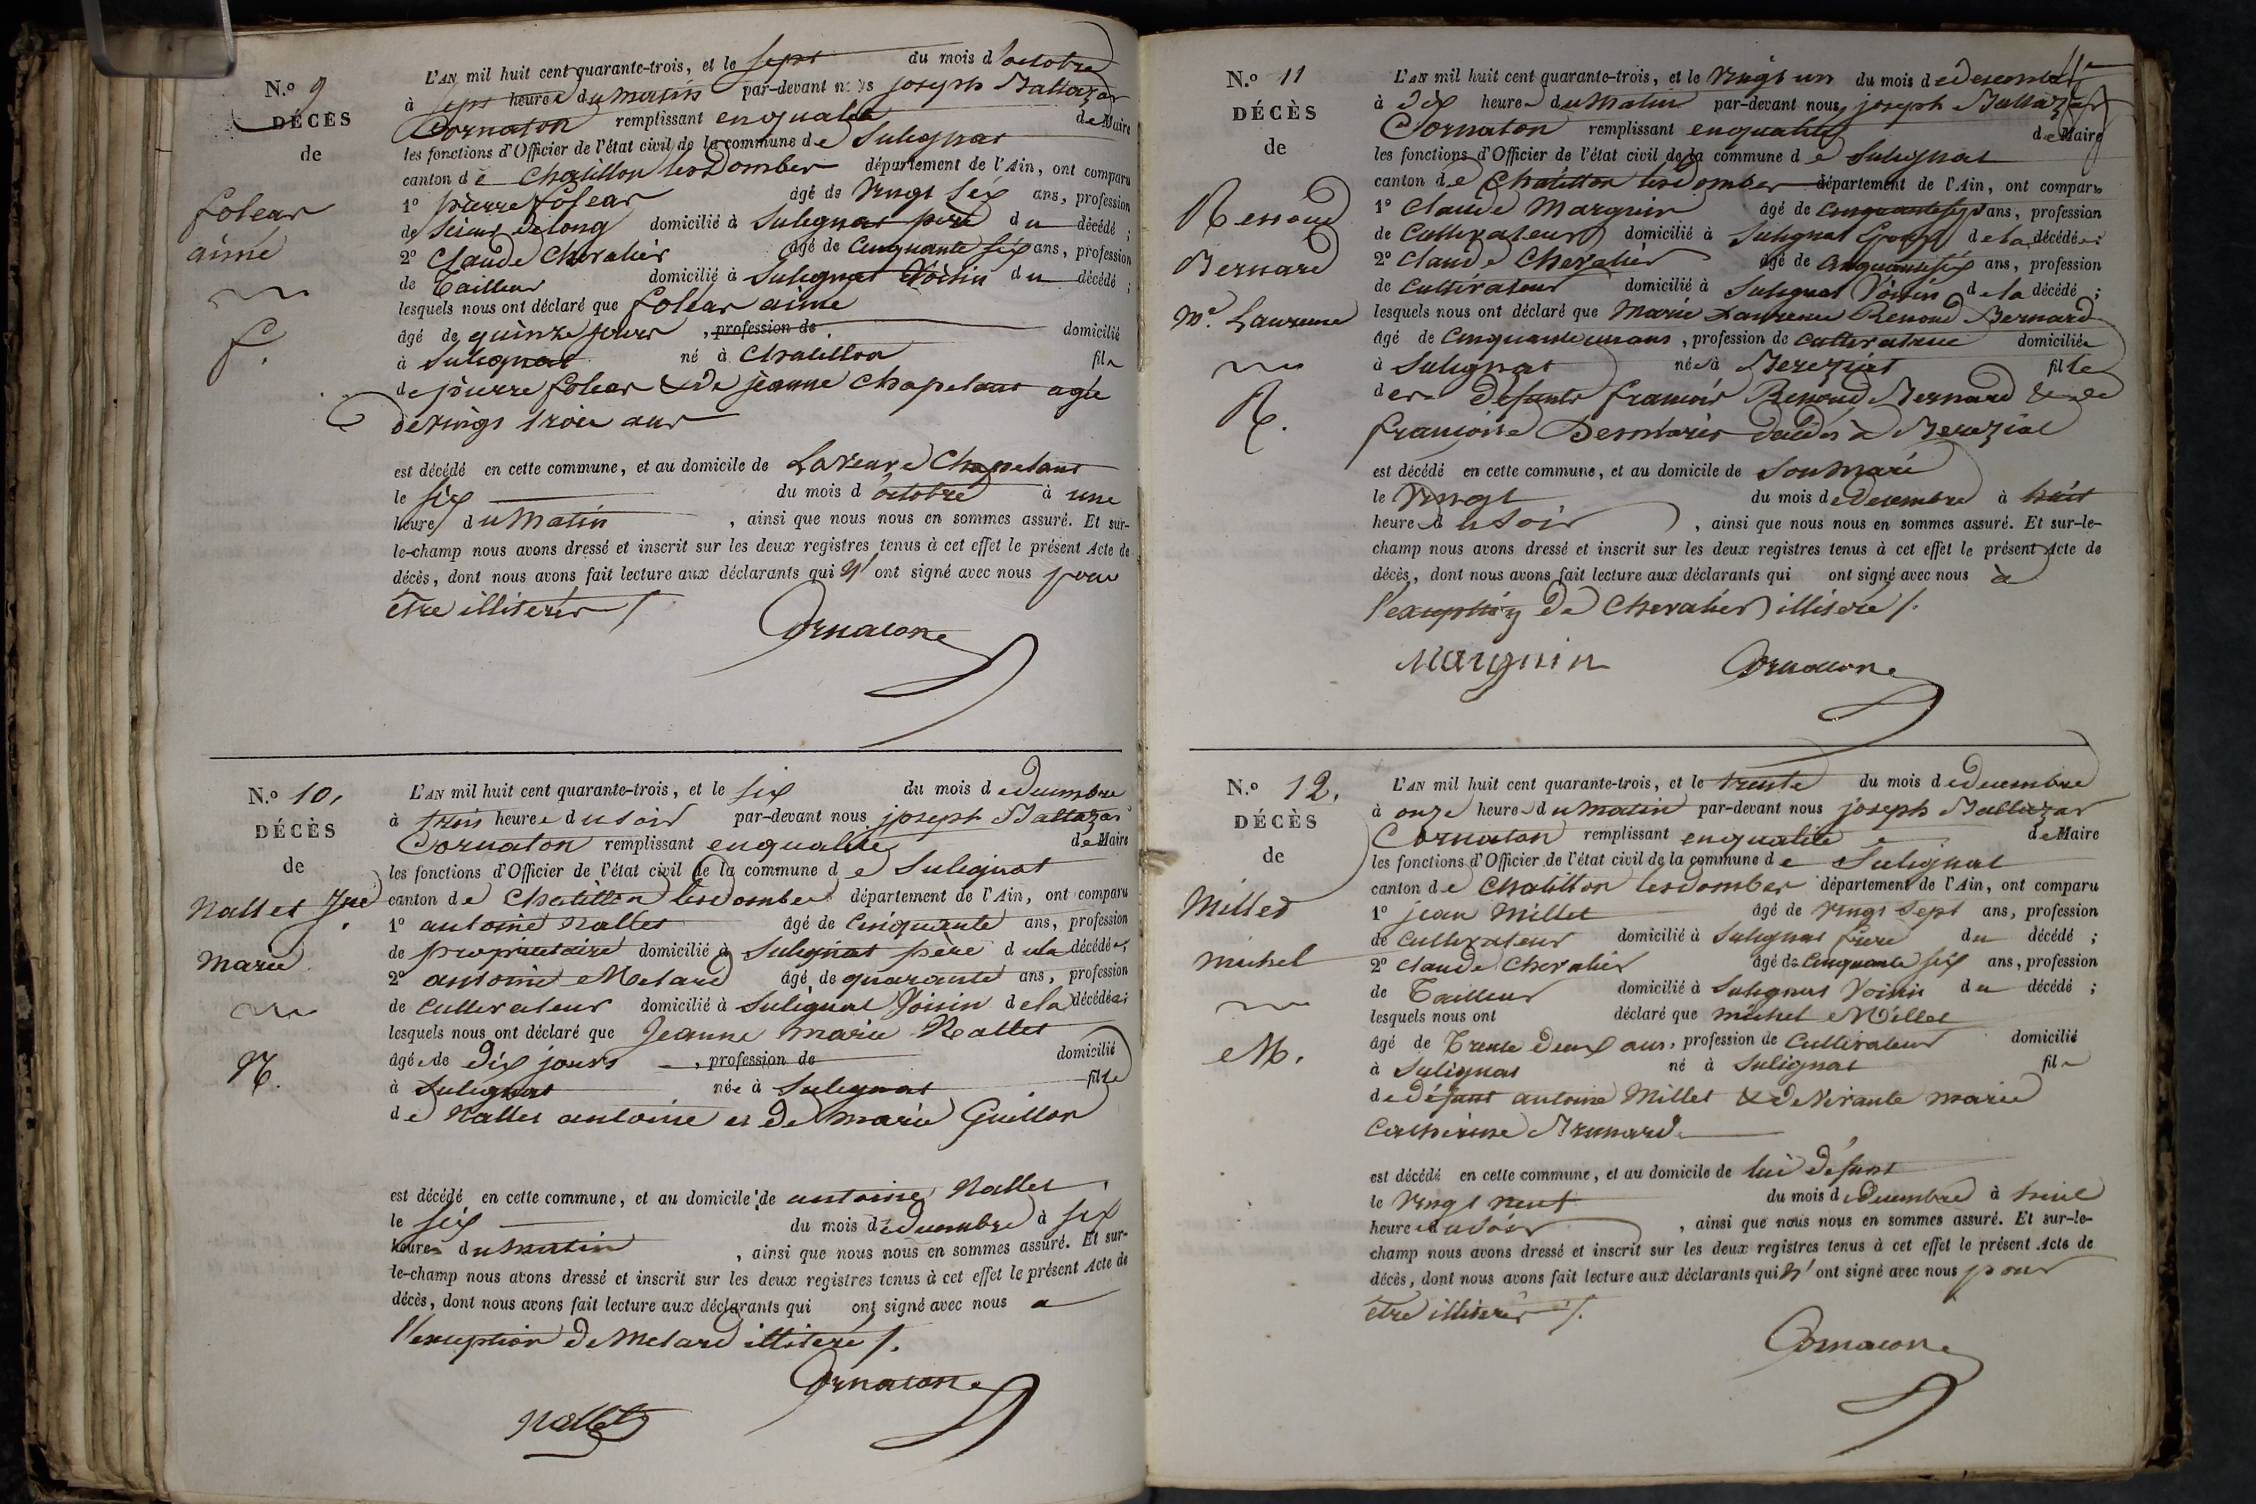 N.o 9
DÉCÈS
de
folear
aimé
f.
L'AN mil huit cent quarante-trois, et le sept du mois d'octobre
à sept heure du matin par-devant nous joseph Baltazar
Cornaton remplissant en qualité de Maire
les fonctions d'Officier de l'état civil de la commune de Sulignat
canton de Chatillon les Dombes département de l'Ain, ont comparu
1° pierre folear âgé de vingt six ans, profession
de Sieur delong domicilié à Sulignat père du décédé ;
2° Claude Chevalier âgé de Cinquante six ans, profession
de Tailleur domicilié à Sulignat Voisin du décédé ;
lesquels nous ont déclaré que folear aimé
âgé de quinze jours , profession de domicilié
à Sulignat né à Chatillon fils
de pierre folear & de jeanne Chapelant agée
de vingt trois ans
est décédé en cette commune, et au domicile de La veuve Chapelant
le six du mois d'octobre à une
heure du Matin , ainsi que nous nous en sommes assuré. Et sur-
le-champ nous avons dressé et inscrit sur les deux registres tenus à cet effet le présent Acte de
décès, dont nous avons fait lecture aux déclarants qui n'ont signé avec nous pour
être illiterés /.
Cornaton
N.o 10,
DÉCÈS
de
Nallet Jne
Marie
N.
L'AN mil huit cent quarante-trois, et le six du mois de decembre
à trois heure du soir par-devant nous joseph Baltazar
Cornaton remplissant en qualité de Maire
les fonctions d'Officier de l'état civil de la commune de Sulignat
canton de Chatillon les Dombes département de l'Ain, ont comparu
1° antoine Nallet âgé de Cinquante ans, profession
de propriétaire domicilié à Sulignat père de la décédée ;
2° antoine Metard âgé de quarante ans, profession
de cultivateur domicilié à Sulignat Voisin de la décédée ;
lesquels nous ont déclaré que Jeanne Marie Nallet
âgée de dix jours , profession de domicilié
à Sulignat née à Sulignat fille
de Nallet antoine et de Marie Guillon
est décédé en cette commune, et au domicile de antoine Nallet
le six du mois de decembre à six
heures du Matin , ainsi que nous nous en sommes assuré. Et sur-
le-champ nous avons dressé et inscrit sur les deux registres tenus à cet effet le présent Acte de
décès, dont nous avons fait lecture aux déclarants qui ont signé avec nous a
l'exception de Metard illiteré /.
Cornaton
Nallet
N.o 11
DÉCÈS
de
Renoud
Bernard
Me. Laurence
R.
L'AN mil huit cent quarante-trois, et le vingt un du mois de decembre
à dix heures du Matin par-devant nous joseph Baltazar
Cornaton remplissant en qualité de Maire
les fonctions d'Officier de l'état civil de la commune de Sulignat
canton de Chatillon les Dombes département de l'Ain, ont comparu
1° Claude Marguin âgé de Cinquante sept ans, profession
de Cultivateur domicilié à Sulignat Epoux de la décédée ;
2° Claude Chevalier âgé de Cinquante six ans, profession
de Cultivateur domicilié à Sulignat Voisin de la décédé ;
lesquels nous ont déclaré que Marie Laurence Renoud Bernard
âgé de Cinquante un ans , profession de cultivatrice domiciliée
à Sulignat née à Bereziat fille
des défunts françois Renoud Bernard & de
françoise Desmaris décédés à Bereziat
est décédé en cette commune, et au domicile de Son Mari
le Vingt du mois de decembre à huit
heures du Soir , ainsi que nous nous en sommes assuré. Et sur-le-
champ nous avons dressé et inscrit sur les deux registres tenus à cet effet le présent Acte de
décès, dont nous avons fait lecture aux déclarants qui ont signé avec nous à
l'exception de Chevalier illiteré /.
Marguin Cornaton
N.o 12.
DÉCÈS
de
Millet
Michel
M.
L'AN mil huit cent quarante-trois, et le trente du mois de decembre
à onze heures du Matin par-devant nous joseph Baltazar
Cornaton remplissant en qualité de Maire
les fonctions d'Officier de l'état civil de la commune de Sulignat
canton de Chatillon les Dombes département de l'Ain, ont comparu
1° jean Millet âgé de vingt sept ans, profession
de Cultivateur domicilié à Sulignat frère du décédé ;
2° Claude Chevalier âgé de Cinquante six ans, profession
de Tailleur domicilié à Sulignat Voisin du décédé ;
lesquels nous ont déclaré que Michel Millet
âgé de Trente deux ans, profession de Cultivateur domicilié
à Sulignat né à Sulignat fils
de défunt antoine Millet & de vivante Marie
Catherine Brunard
est décédé en cette commune, et au domicile de lui défunt
le vingt neuf du mois de decembre à huit
heures du soir , ainsi que nous nous en sommes assuré. Et sur-le-
champ nous avons dressé et inscrit sur les deux registres tenus à cet effet le présent Acte de
décès, dont nous avons fait lecture aux déclarants qui n'ont signé avec nous pour
être illiterés /.
Cornaton